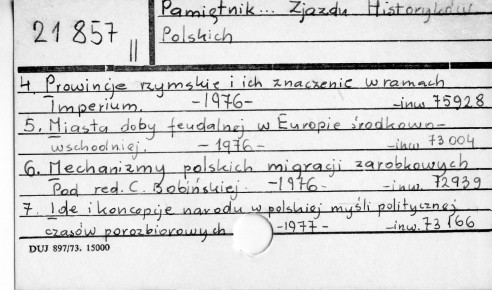 Pamiętnik... Zjazdu Historyków
21857 II
Polskich
4. Prowincje rzymskie i ich znaczenie w ramach
Imperium. -1976- -inw. 75928
5. Miasta doby feudalnej w Europie środkowo-
wschodniej. - 1976- -inw 73004
6. Mechanizmy polskich migracji zarobkowych
Pod red. C. Bobińskiej. -1976- -inw. 72939
7. Ide i koncepcje narodu w polskiej myśli politycznej
czasów porozbiorowych -1977- -inw. 73166
DUJ 897/73. 15000